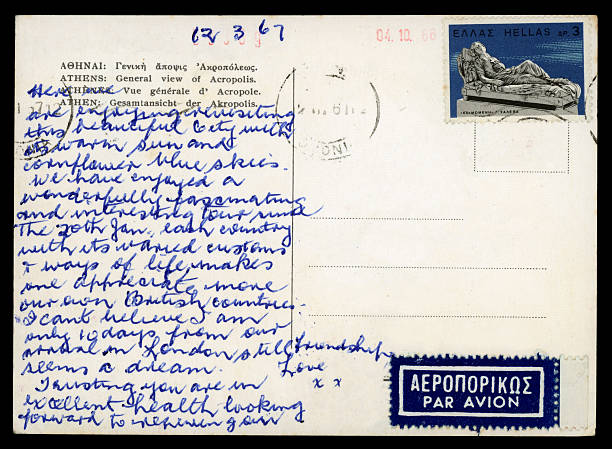 12 3 67
04.10.86
ΕΛΛΑΣ HELLAS ΔΡ. 3
ΑΘΗΝΑΙ: Γενική ἄποψις Ἀκροπόλεως.
ATHENS: General view of Acropolis.
ATHENES: Vue générale d' Acropole.
ATHEN: Gesamtansicht der Akropolis.
Here we
are enjoying revisiting
this beautiful City with
its warm sun and
cornflower blue skies.
We have enjoyed a
wonderfully fascinating
and interesting tour since
the 20th Jan. each country
with its varied customs
& ways of life, makes
one appreciate more
our own British countries.
I cant believe I am
only 10 days from our
arrival in London still
seems a dream.
Trusting you are in
excellent health looking
forward to renewing our
friendship
Love
x x
ΑΕΡΟΠΟΡΙΚΩΣ
PAR AVION